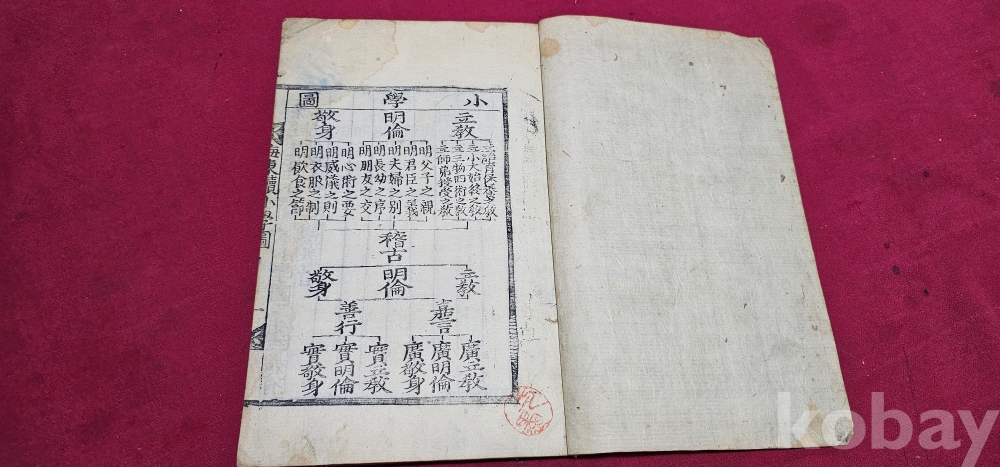 小學圖
立教 明倫 敬身
立胎育保養之教
立小大始終之教
立三物四術之教
立師弟授受之教
明父子之親
明君臣之義
明夫婦之別
明長幼之序
明朋友之交
明心術之要
明威儀之則
明衣服之制
明飮食之節
稽古
立教 明倫 敬身
嘉言 善行
廣立教
廣明倫
廣敬身
實立教
實明倫
實敬身
海東續小學圖
kobay